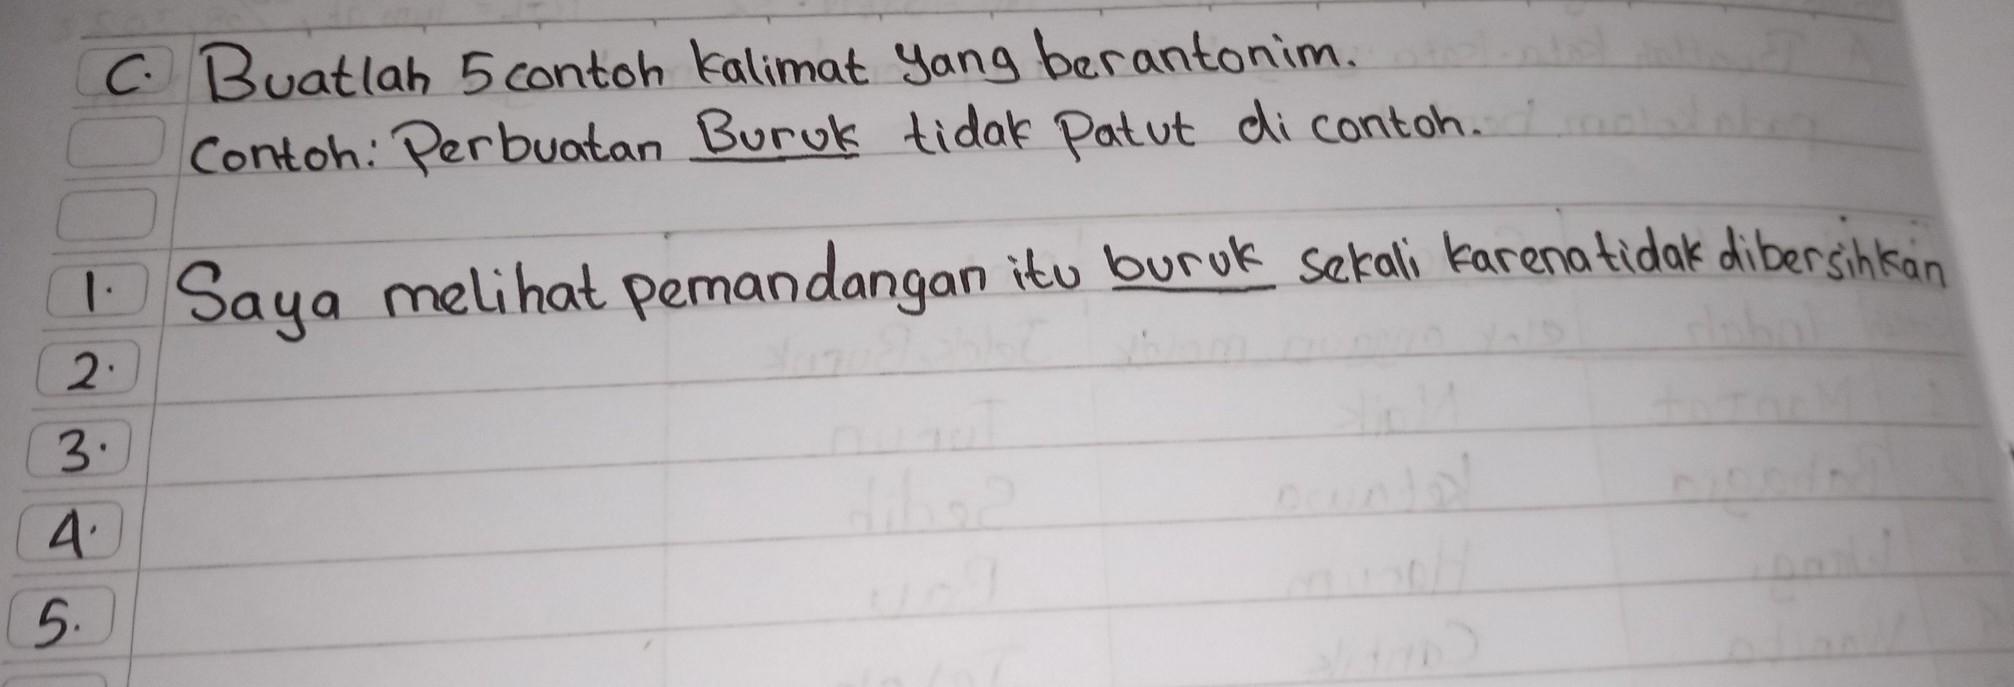 C. Buatlah 5 contoh kalimat yang berantonim.
Contoh: Perbuatan Buruk tidak Patut di contoh.
1. Saya melihat pemandangan itu buruk sekali karena tidak dibersihkan
2.
3.
4.
5.